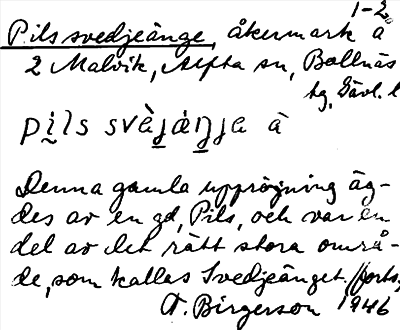 1-2
Pilssvedjeänge, åkermark å
2 Malvik, Alfta sn, Bollnäs
tg, Gävl. l
pi̲ls svèjä̀ŋja å̀
Denna gamla uppröjning äg-
des av en gd, Pils, och var en
del av det rätt stora områ-
de, som kallas Svedjeänget. /forts.
A. Birgerson 1946